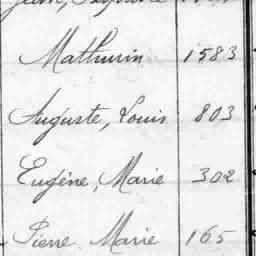 Mathurin 1583
Auguste, Louis 803
Eugène, Marie 302
Pierre Marie 165